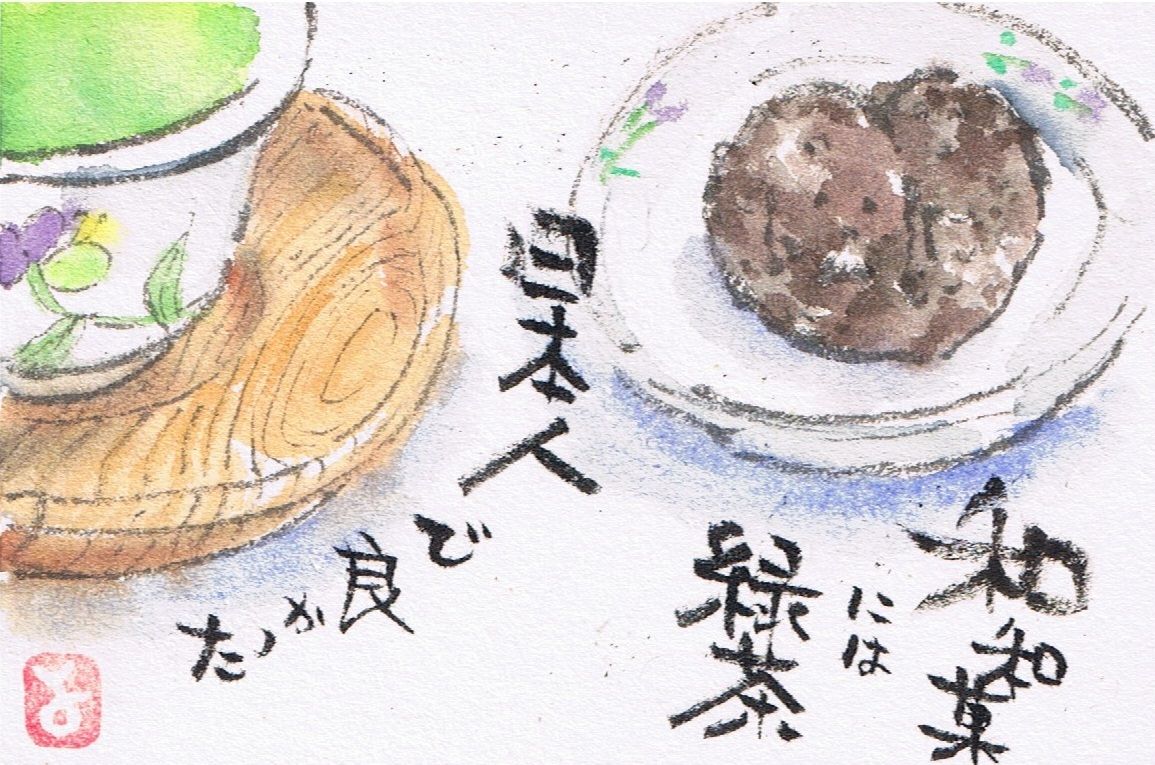 和和菓
には
緑茶
日本人
で
良
かった